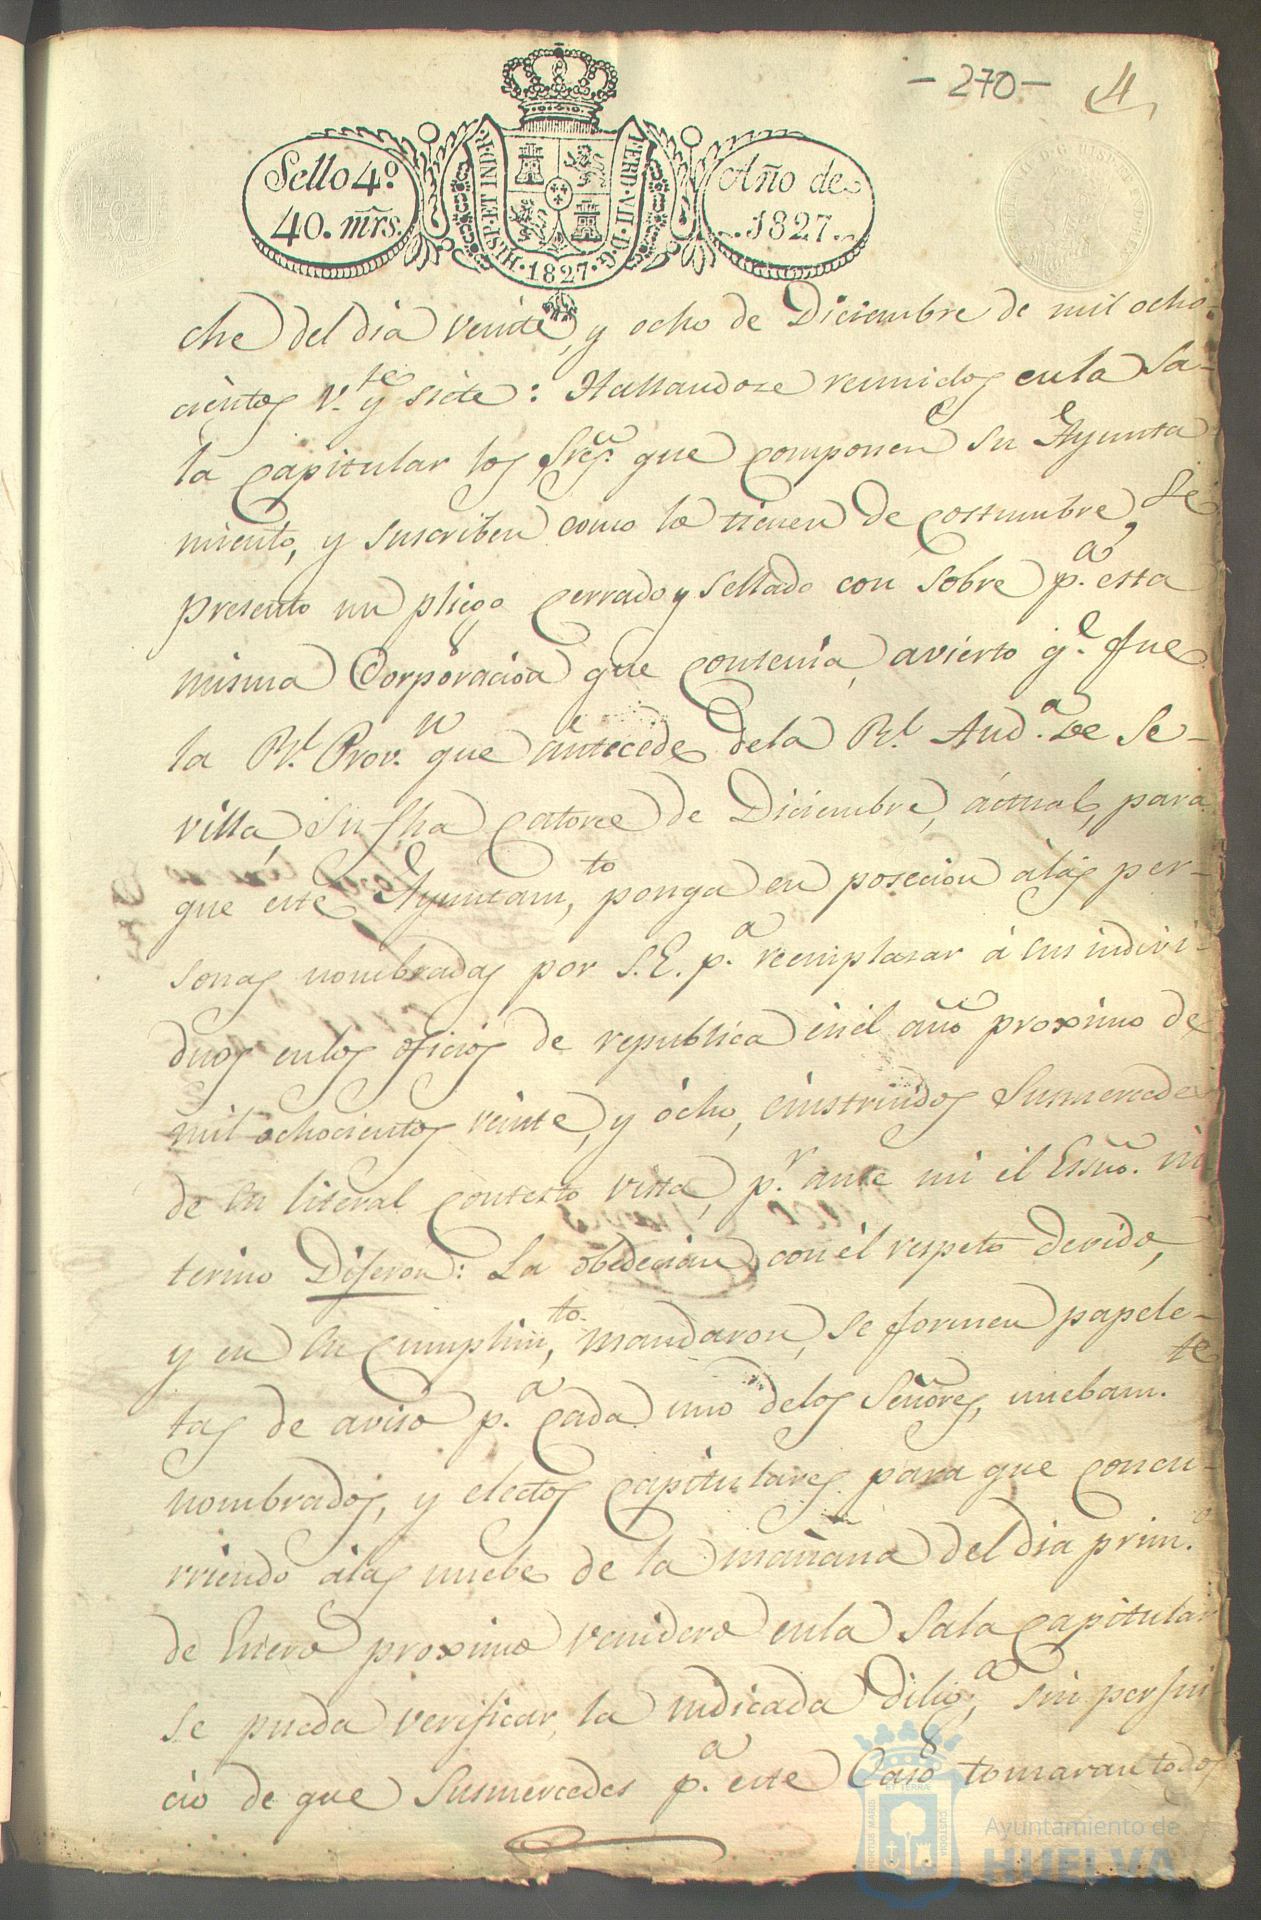 - 270 - 4
Sello 4º
40. mrs.
HISP. ET IND. R. FERD. VII. D. G.
1827
Año de
1827.
che del dia veinte, y ocho de Diciembre de mil ocho-
cientos V.te y siete: Hallandose reunidos en la Sa-
la capitular los Sres. que componen su Ayunta
miento, y suscriben como lo tienen de costumbre, se
presento un pliego cerrado y sellado con sobre p.a esta
misma Corporacion que contenia, avierto q.e fue
la Rl. Prov.n que antecede de la Rl. Aud.a de Se-
villa, su fha catorce de Diciembre, actual, para
que este Ayuntam.to ponga en posecion á las per-
sonas nombradas por S.E. p.a reemplasar á sus indivi-
duos en los oficios de republica en el año proximo de
mil ochocientos veinte, y ócho, é instruidos Susmercedes
de su literal contesto vista, p.r ante mi el Essno. in
terino Dijeron: La obedecian con el respeto devido,
y en su cumplim.to mandaron, se formen papele-
tas de aviso p.a cada uno de los Señores, nuebam.te
nombrados, y electos capitulares para que concu-
rriendo á las nuebe de la mañana del dia prim.o
de Enero proximo venidero en la Sala capitular
se pueda verificar la indicada dilig.a sin perjui
cio de que Susmercedes p.a este Caso tomaran todos
Ayuntamiento de
HUELVA